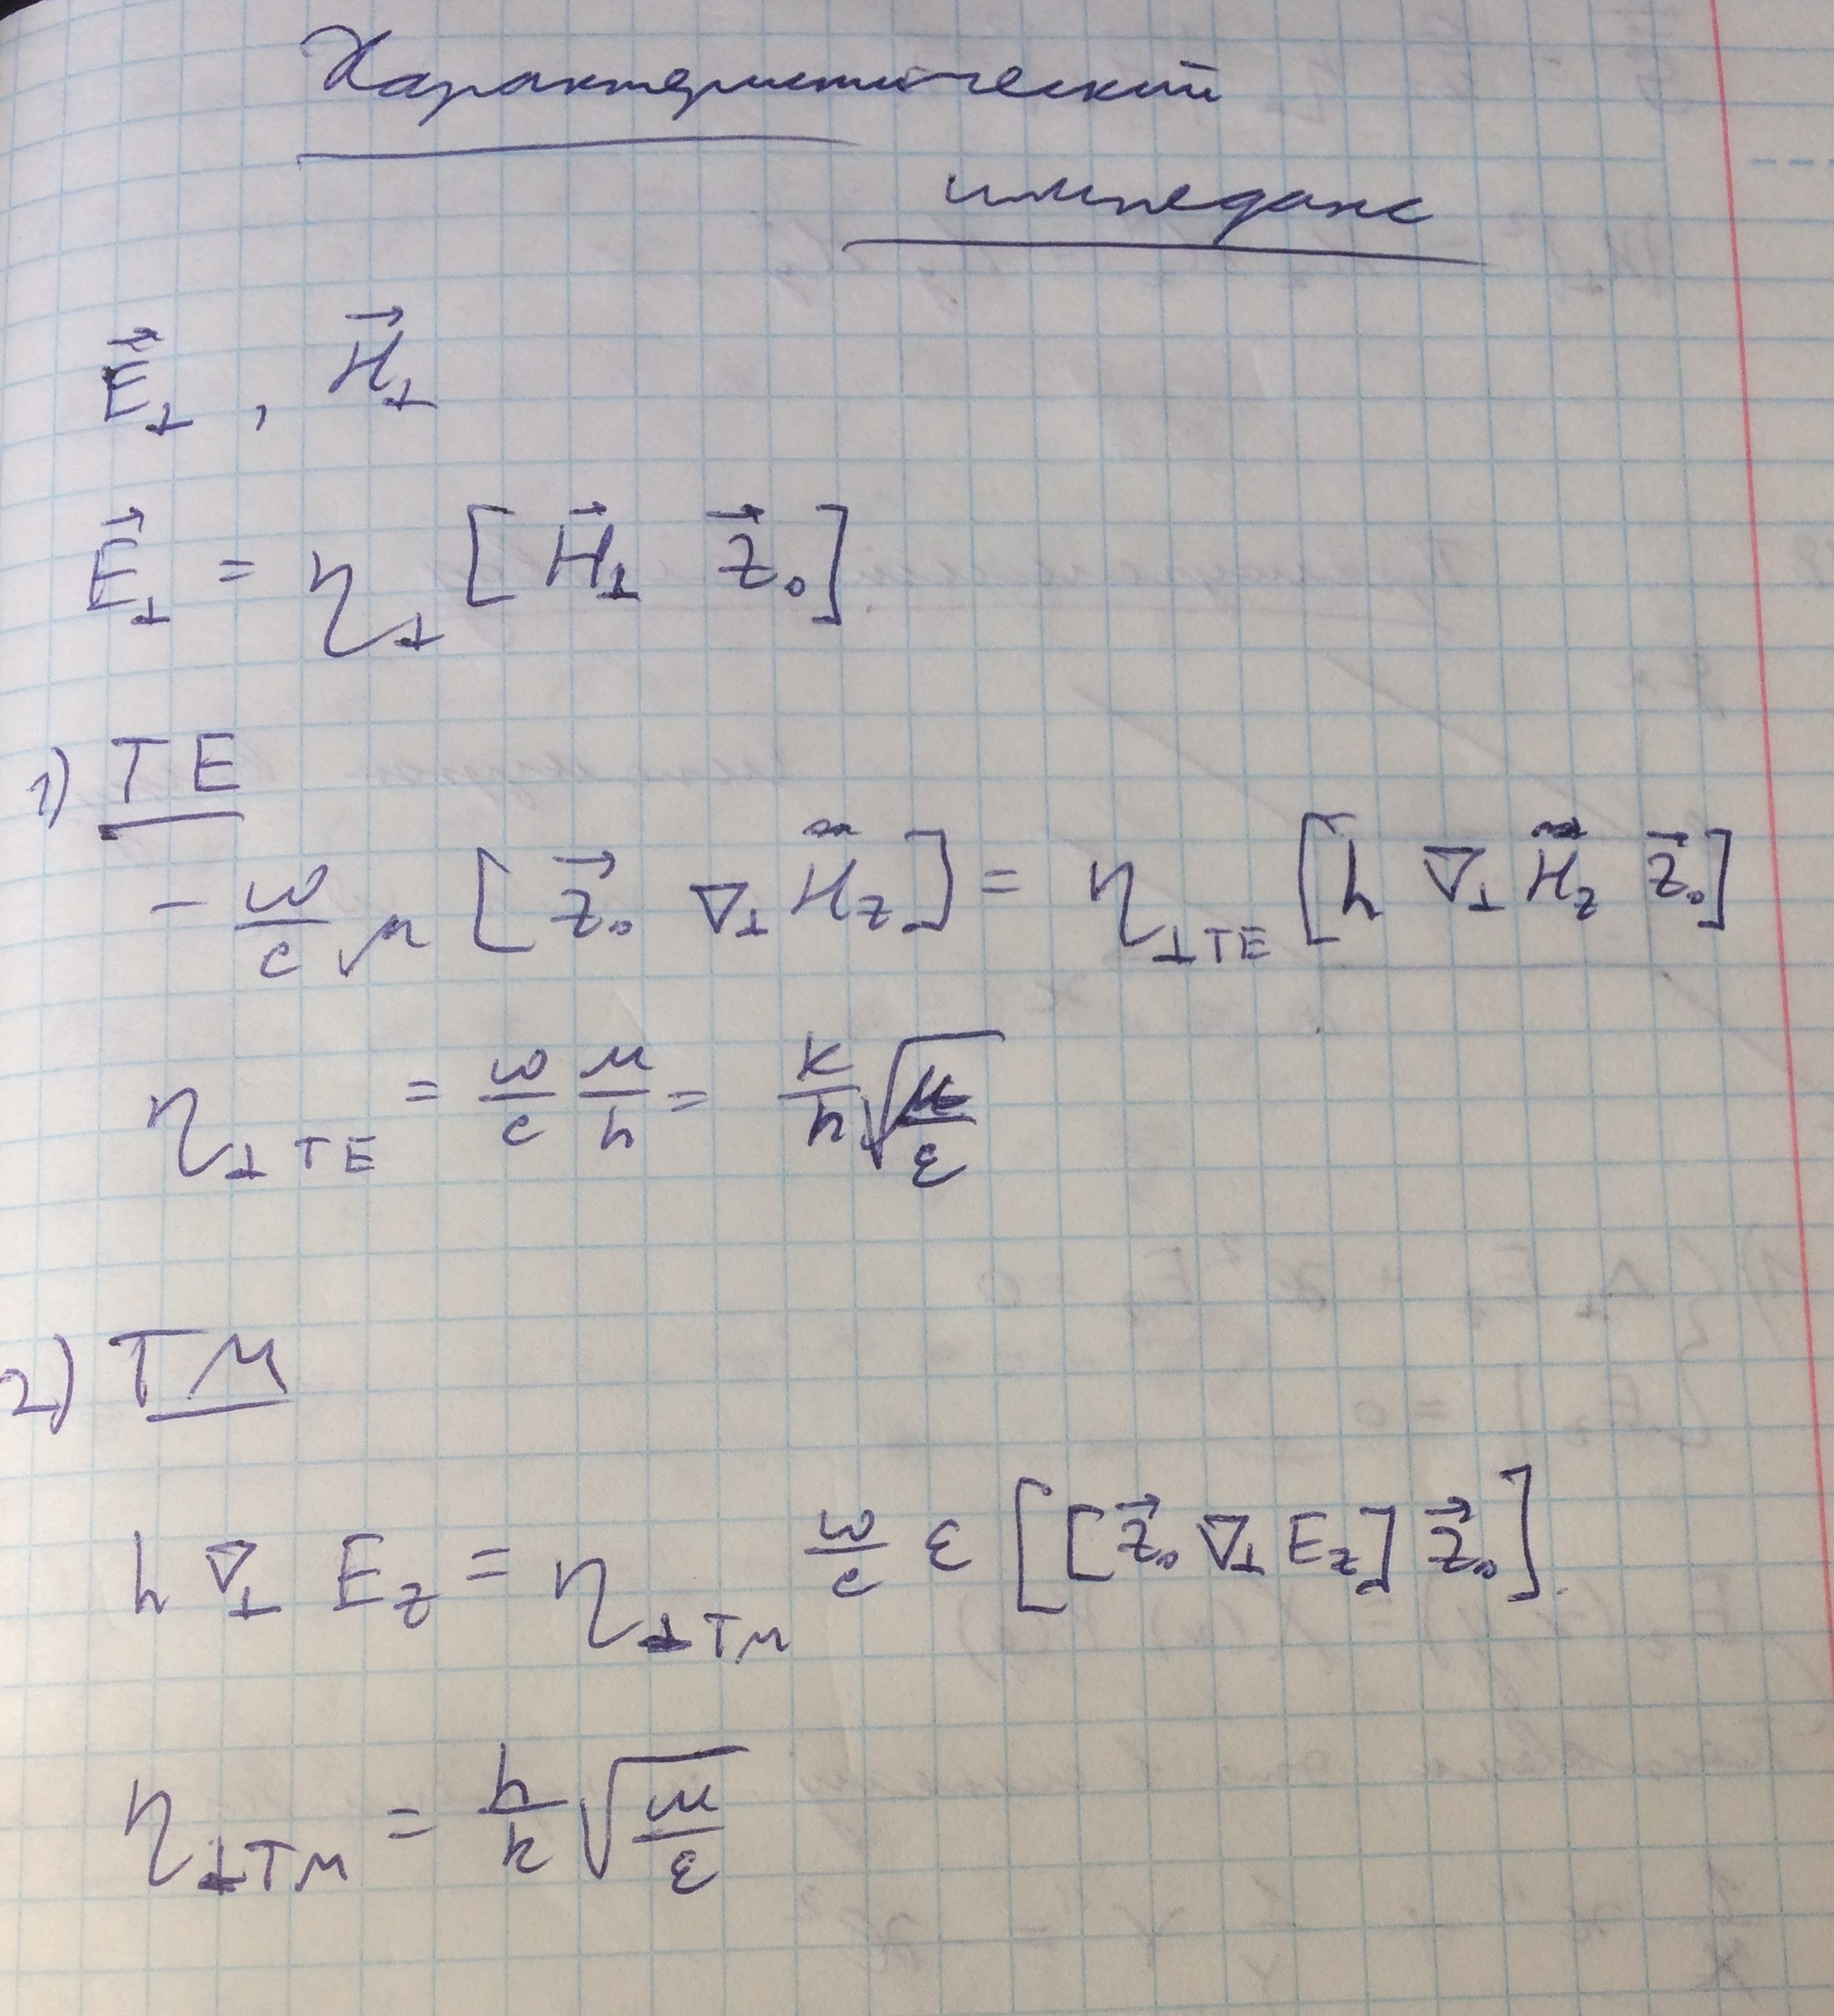 Характеристический
импеданс
E⃗⊥ , H⃗⊥
E⃗⊥ = η⊥ [H⃗⊥ z⃗₀].
1) TE
- ω/c μ [z⃗₀ ∇⊥ H̃z] = η⊥TE [h ∇⊥ H̃z z⃗₀]
η⊥TE = ω/c μ/h = k/h √(μ/ε)
2) TM
h ∇⊥ Ez = η⊥TM ω/c ε [[z⃗₀ ∇⊥ Ez] z⃗₀].
η⊥TM = h/k √(μ/ε)